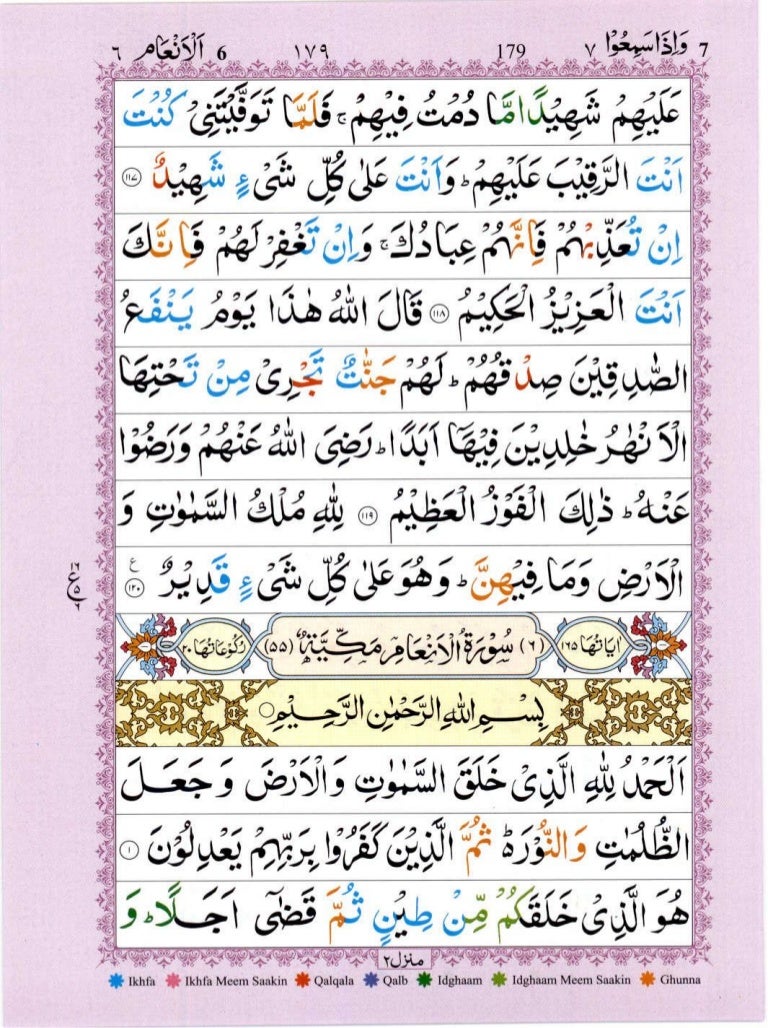 وَاِذَا سَمِعُوْا ٧ 7 179 ١٧٩ 6 اَلْاَنْعَام ٦
عَلَيْهِمْ شَهِيْدًا امَّا دُمْتُ فِيْهِمْ ۚ فَلَمَّا تَوَفَّيْتَنِيْ كُنْتَ
اَنْتَ الرَّقِيْبَ عَلَيْهِمْ ؕ وَاَنْتَ عَلٰى كُلِّ شَيْءٍ شَهِيْدٌ ١١٧
اِنْ تُعَذِّبْهُمْ فَاِنَّهُمْ عِبَادُكَ ۚ وَاِنْ تَغْفِرْ لَهُمْ فَاِنَّكَ
اَنْتَ الْعَزِيْزُ الْحَكِيْمُ ١١٨ قَالَ اللّٰهُ هٰذَا يَوْمُ يَنْفَعُ
الصّٰدِقِيْنَ صِدْقُهُمْ ؕ لَهُمْ جَنّٰتٌ تَجْرِيْ مِنْ تَحْتِهَا
الْاَنْهٰرُ خٰلِدِيْنَ فِيْهَاۤ اَبَدًا ؕ رَضِيَ اللّٰهُ عَنْهُمْ وَرَضُوْا
عَنْهُ ؕ ذٰلِكَ الْفَوْزُ الْعَظِيْمُ ١١٩ لِلّٰهِ مُلْكُ السَّمٰوٰتِ وَ
الْاَرْضِ وَمَا فِيْهِنَّ ؕ وَهُوَ عَلٰى كُلِّ شَيْءٍ قَدِيْرٌ ١٢٠
اٰيَاتُهَا ١٦٥ (٦) سُوْرَةُ الْاَنْعَامِ مَكِّيَّةٌ (٥٥) رُكُوْعَاتُهَا ٢٠
بِسْمِ اللّٰهِ الرَّحْمٰنِ الرَّحِيْمِ
اَلْحَمْدُ لِلّٰهِ الَّذِيْ خَلَقَ السَّمٰوٰتِ وَالْاَرْضَ وَجَعَلَ
الظُّلُمٰتِ وَالنُّوْرَ ؕ ثُمَّ الَّذِيْنَ كَفَرُوْا بِرَبِّهِمْ يَعْدِلُوْنَ ١
هُوَ الَّذِيْ خَلَقَكُمْ مِّنْ طِيْنٍ ثُمَّ قَضٰۤى اَجَلًا ؕ وَ
منزل٢
Ikhfa Ikhfa Meem Saakin Qalqala Qalb Idghaam Idghaam Meem Saakin Ghunna